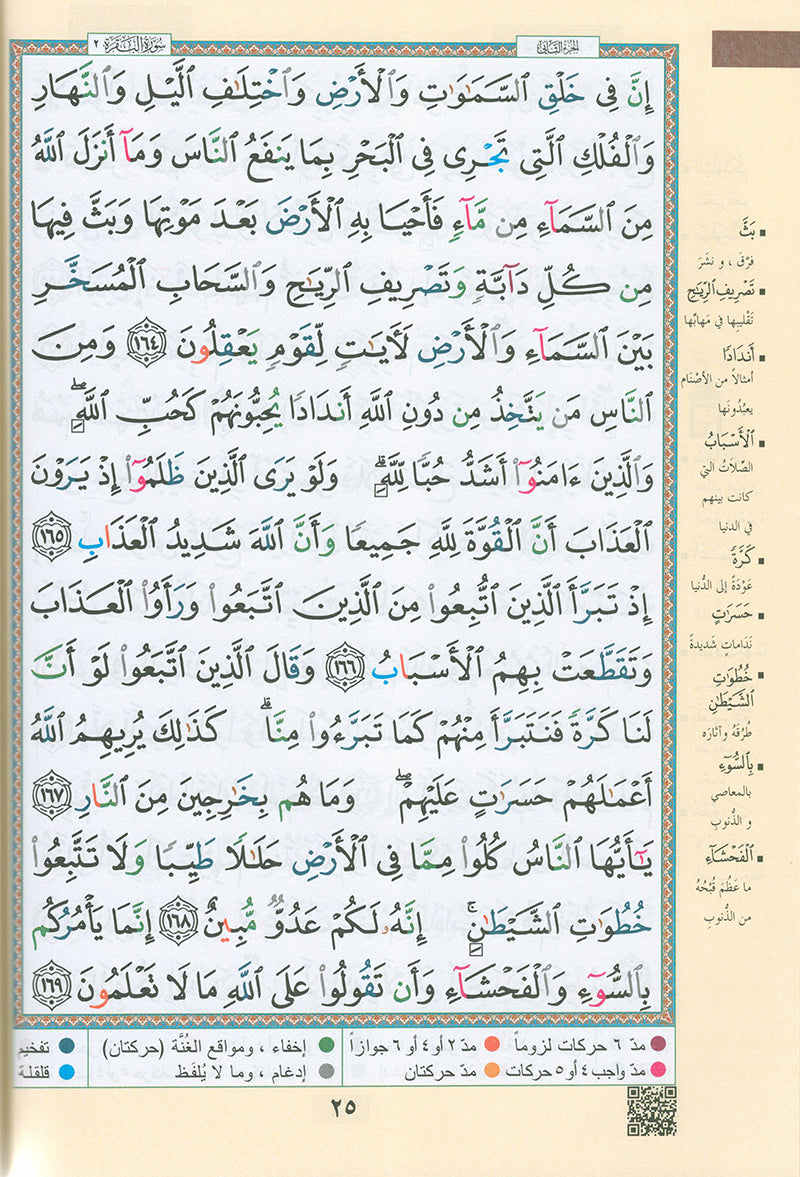 سُورَةُ البَقَرَةِ ٢
الجُزءُ الثَّانِي
إِنَّ فِي خَلْقِ ٱلسَّمَٰوَٰتِ وَٱلْأَرْضِ وَٱخْتِلَٰفِ ٱلَّيْلِ وَٱلنَّهَارِ
وَٱلْفُلْكِ ٱلَّتِي تَجْرِي فِي ٱلْبَحْرِ بِمَا يَنفَعُ ٱلنَّاسَ وَمَآ أَنزَلَ ٱللَّهُ
مِنَ ٱلسَّمَآءِ مِن مَّآءٍ فَأَحْيَا بِهِ ٱلْأَرْضَ بَعْدَ مَوْتِهَا وَبَثَّ فِيهَا
مِن كُلِّ دَآبَّةٍ وَتَصْرِيفِ ٱلرِّيَٰحِ وَٱلسَّحَابِ ٱلْمُسَخَّرِ
بَيْنَ ٱلسَّمَآءِ وَٱلْأَرْضِ لَأٓيَٰتٍ لِّقَوْمٍ يَعْقِلُونَ ١٦٤ وَمِنَ
ٱلنَّاسِ مَن يَتَّخِذُ مِن دُونِ ٱللَّهِ أَندَادًا يُحِبُّونَهُمْ كَحُبِّ ٱللَّهِ ۖ
وَٱلَّذِينَ ءَامَنُوٓا۟ أَشَدُّ حُبًّا لِّلَّهِ ۗ وَلَوْ يَرَى ٱلَّذِينَ ظَلَمُوٓا۟ إِذْ يَرَوْنَ
ٱلْعَذَابَ أَنَّ ٱلْقُوَّةَ لِلَّهِ جَمِيعًا وَأَنَّ ٱللَّهَ شَدِيدُ ٱلْعَذَابِ ١٦٥
إِذْ تَبَرَّأَ ٱلَّذِينَ ٱتُّبِعُوا۟ مِنَ ٱلَّذِينَ ٱتَّبَعُوا۟ وَرَأَوُا۟ ٱلْعَذَابَ
وَتَقَطَّعَتْ بِهِمُ ٱلْأَسْبَابُ ١٦٦ وَقَالَ ٱلَّذِينَ ٱتَّبَعُوا۟ لَوْ أَنَّ
لَنَا كَرَّةً فَنَتَبَرَّأَ مِنْهُمْ كَمَا تَبَرَّءُوا۟ مِنَّا ۗ كَذَٰلِكَ يُرِيهِمُ ٱللَّهُ
أَعْمَٰلَهُمْ حَسَرَٰتٍ عَلَيْهِمْ ۖ وَمَا هُم بِخَٰرِجِينَ مِنَ ٱلنَّارِ ١٦٧
يَٰٓأَيُّهَا ٱلنَّاسُ كُلُوا۟ مِمَّا فِي ٱلْأَرْضِ حَلَٰلًا طَيِّبًا وَلَا تَتَّبِعُوا۟
خُطُوَٰتِ ٱلشَّيْطَٰنِ ۚ إِنَّهُۥ لَكُمْ عَدُوٌّ مُّبِينٌ ١٦٨ إِنَّمَا يَأْمُرُكُم
بِٱلسُّوٓءِ وَٱلْفَحْشَآءِ وَأَن تَقُولُوا۟ عَلَى ٱللَّهِ مَا لَا تَعْلَمُونَ ١٦٩
بَثَّ
فرَّقَ ، و نشَرَ
تَصْرِيفِ ٱلرِّيَٰحِ
تَقْليبِها في مَهابِّها
أَندَادًا
أمثالاً من الأصْنام
يعبُدُونَها
ٱلْأَسْبَابُ
الصِّلاتُ التي
كانت بينهم
في الدنيا
كَرَّةً
عَوْدَةً إلى الدُّنيا
حَسَرَٰتٍ
نَدَاماتٍ شديدةً
خُطُوَٰتِ
ٱلشَّيْطَٰنِ
طُرُقَهُ وآثارَه
بِٱلسُّوٓءِ
بالمعاصي
و الذُّنوبِ
ٱلْفَحْشَآءِ
ما عَظُمَ قُبْحُهُ
من الذُّنوبِ
مدّ ٦ حركات لزوماً مدّ ٢ أو ٤ أو ٦ جوازاً إخفاء ، ومواقع الغُنَّة (حركتان) تفخيم
مدّ واجب ٤ أو ٥ حركات مدّ حركتان إدغام ، وما لا يُلفَظ قلقلة
٢٥